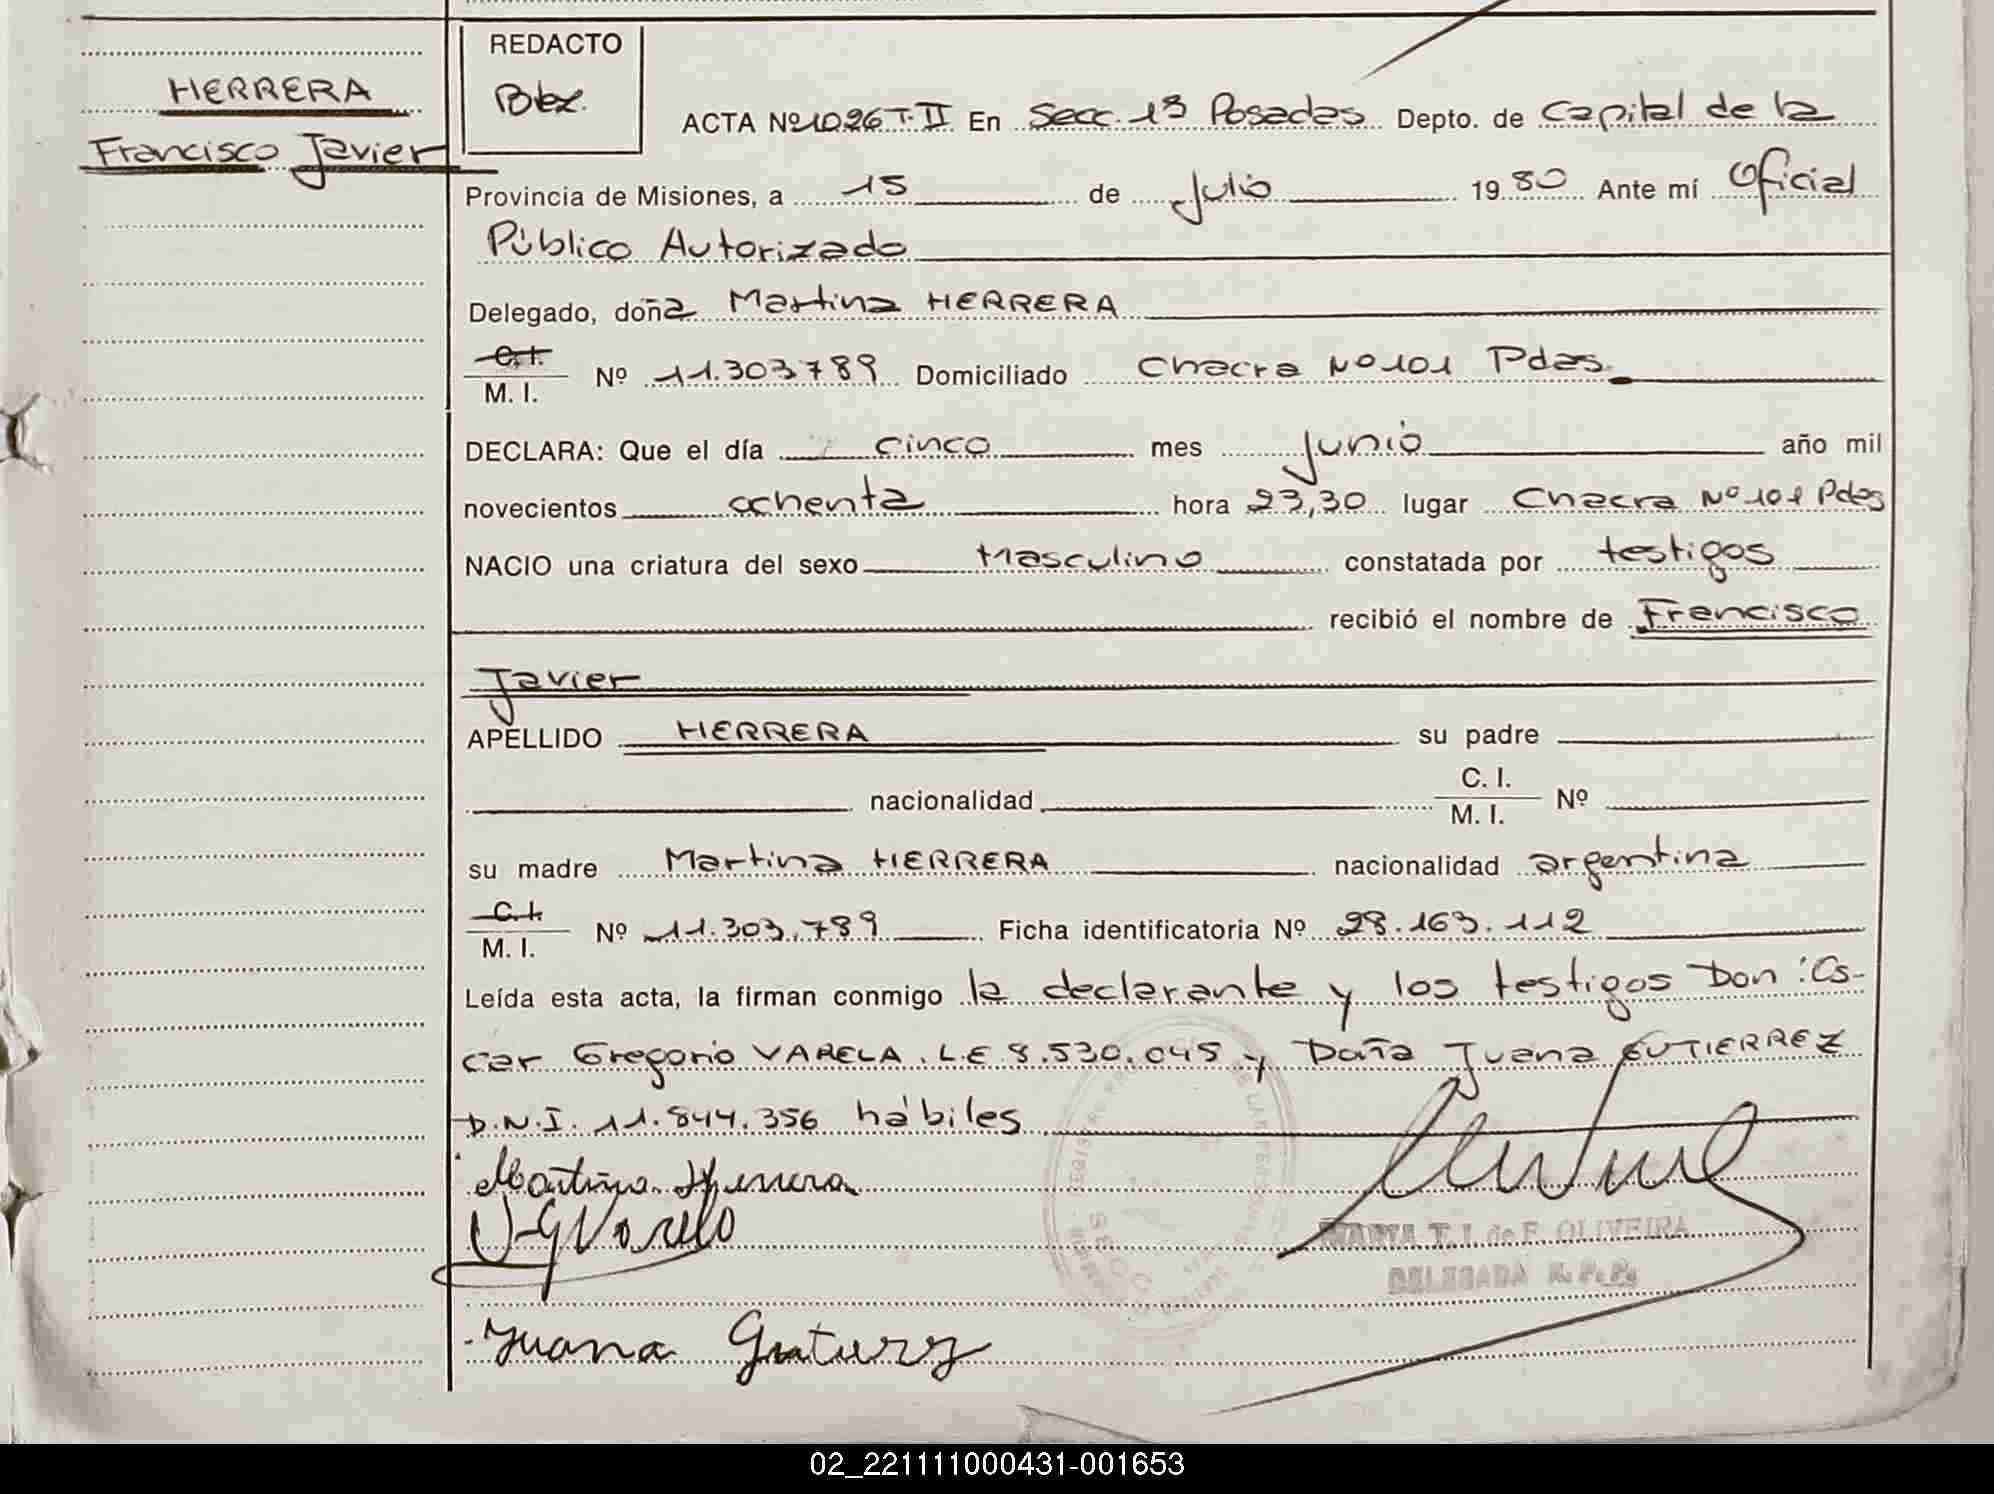 HERRERA
Francisco Javier
REDACTO
ACTA Nº 1026 T. II En Secc. 1ª Posadas Depto. de Capital de la
Provincia de Misiones, a 15 de Julio 1980 Ante mí Oficial
Público Autorizado
Delegado, doña Martina HERRERA
C.I.
M. I. Nº 11.303789 Domiciliado Chacra Nº 101 Pdas.
DECLARA: Que el día cinco mes Junio año mil
novecientos ochenta hora 23,30 lugar Chacra Nº 101 Pdas
NACIO una criatura del sexo Masculino constatada por testigos
recibió el nombre de Francisco
Javier
APELLIDO HERRERA su padre
nacionalidad C. I.
M. I. Nº
su madre Martina HERRERA nacionalidad argentina
C. I.
M. I. Nº 11.303.789 Ficha identificatoria Nº 28.163.112
Leída esta acta, la firman conmigo la declarante y los testigos Don: Os-
car Gregorio VARELA. L.E 8.530.045 y Doña Juana GUTIERREZ
D.N.I. 11.844.356 hábiles
Martina Herrera
Juana
MARTA T. I. de F. OLIVEIRA
DELEGADA R. P. P.
02_221111000431-001653